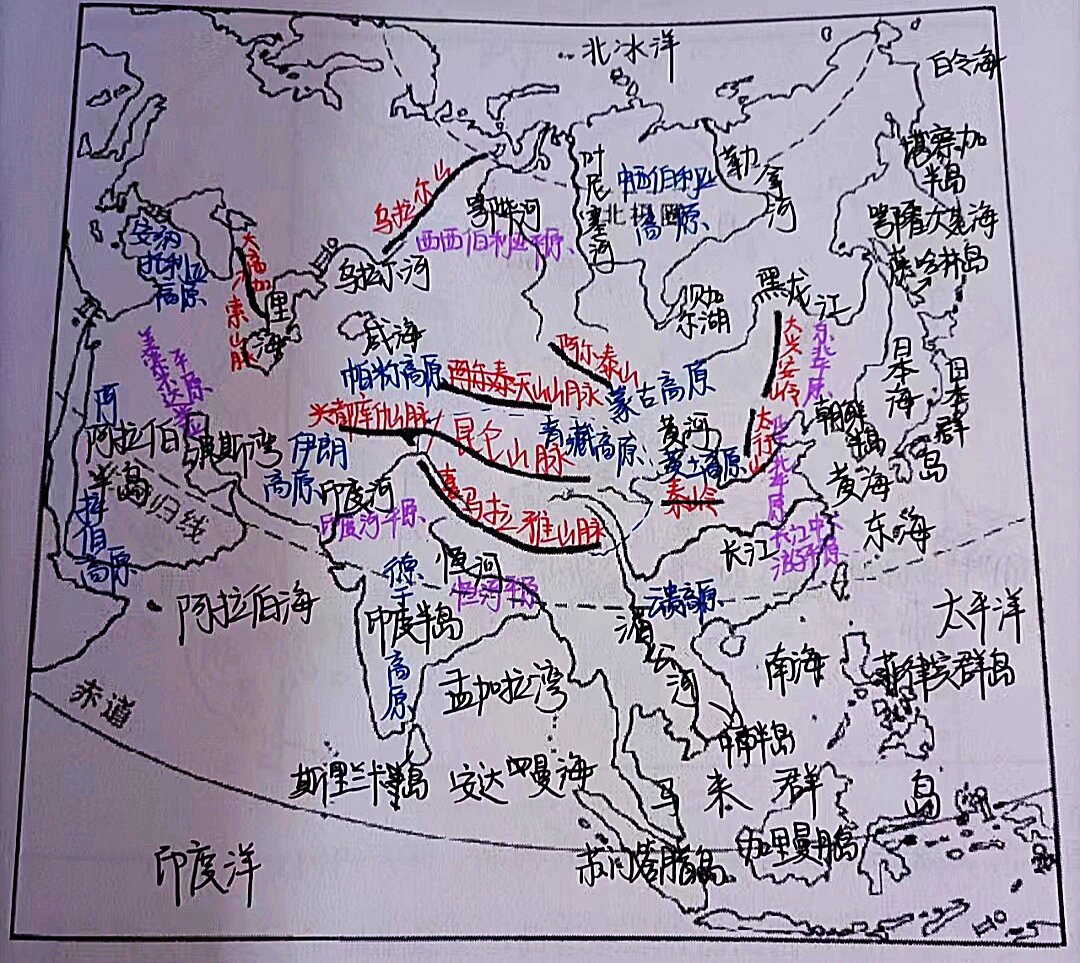 北冰洋
白令海
堪察加
半岛
勒拿河
叶尼塞河
中西伯利亚
高原
北极圈
鄂毕河
乌拉尔山
西西伯利亚平原
鄂霍次克海
库页岛
安纳
托利亚
高原
大高加索山脉
里海
乌拉尔河
贝加
尔湖
黑龙江
咸海
阿尔泰山
大兴安岭
东北平原
日本海
日本群岛
帕米尔高原
天山山脉
蒙古高原
美索不达米亚平原
兴都库什山脉
昆仑山脉
青藏高原
黄河
黄土高原
太行山
朝鲜
半岛
华北平原
阿拉伯高原
阿拉伯
半岛
波斯湾
伊朗
高原
印度河
印度河平原
喜马拉雅山脉
秦岭
黄海
东海
长江
长江中下
游平原
恒河
恒河平原
德干高原
印度半岛
云贵高原
湄公河
阿拉伯海
太平洋
南海
菲律宾群岛
孟加拉湾
赤道
中南半岛
斯里兰卡岛
安达曼海
马来群岛
苏门答腊岛
加里曼丹岛
印度洋